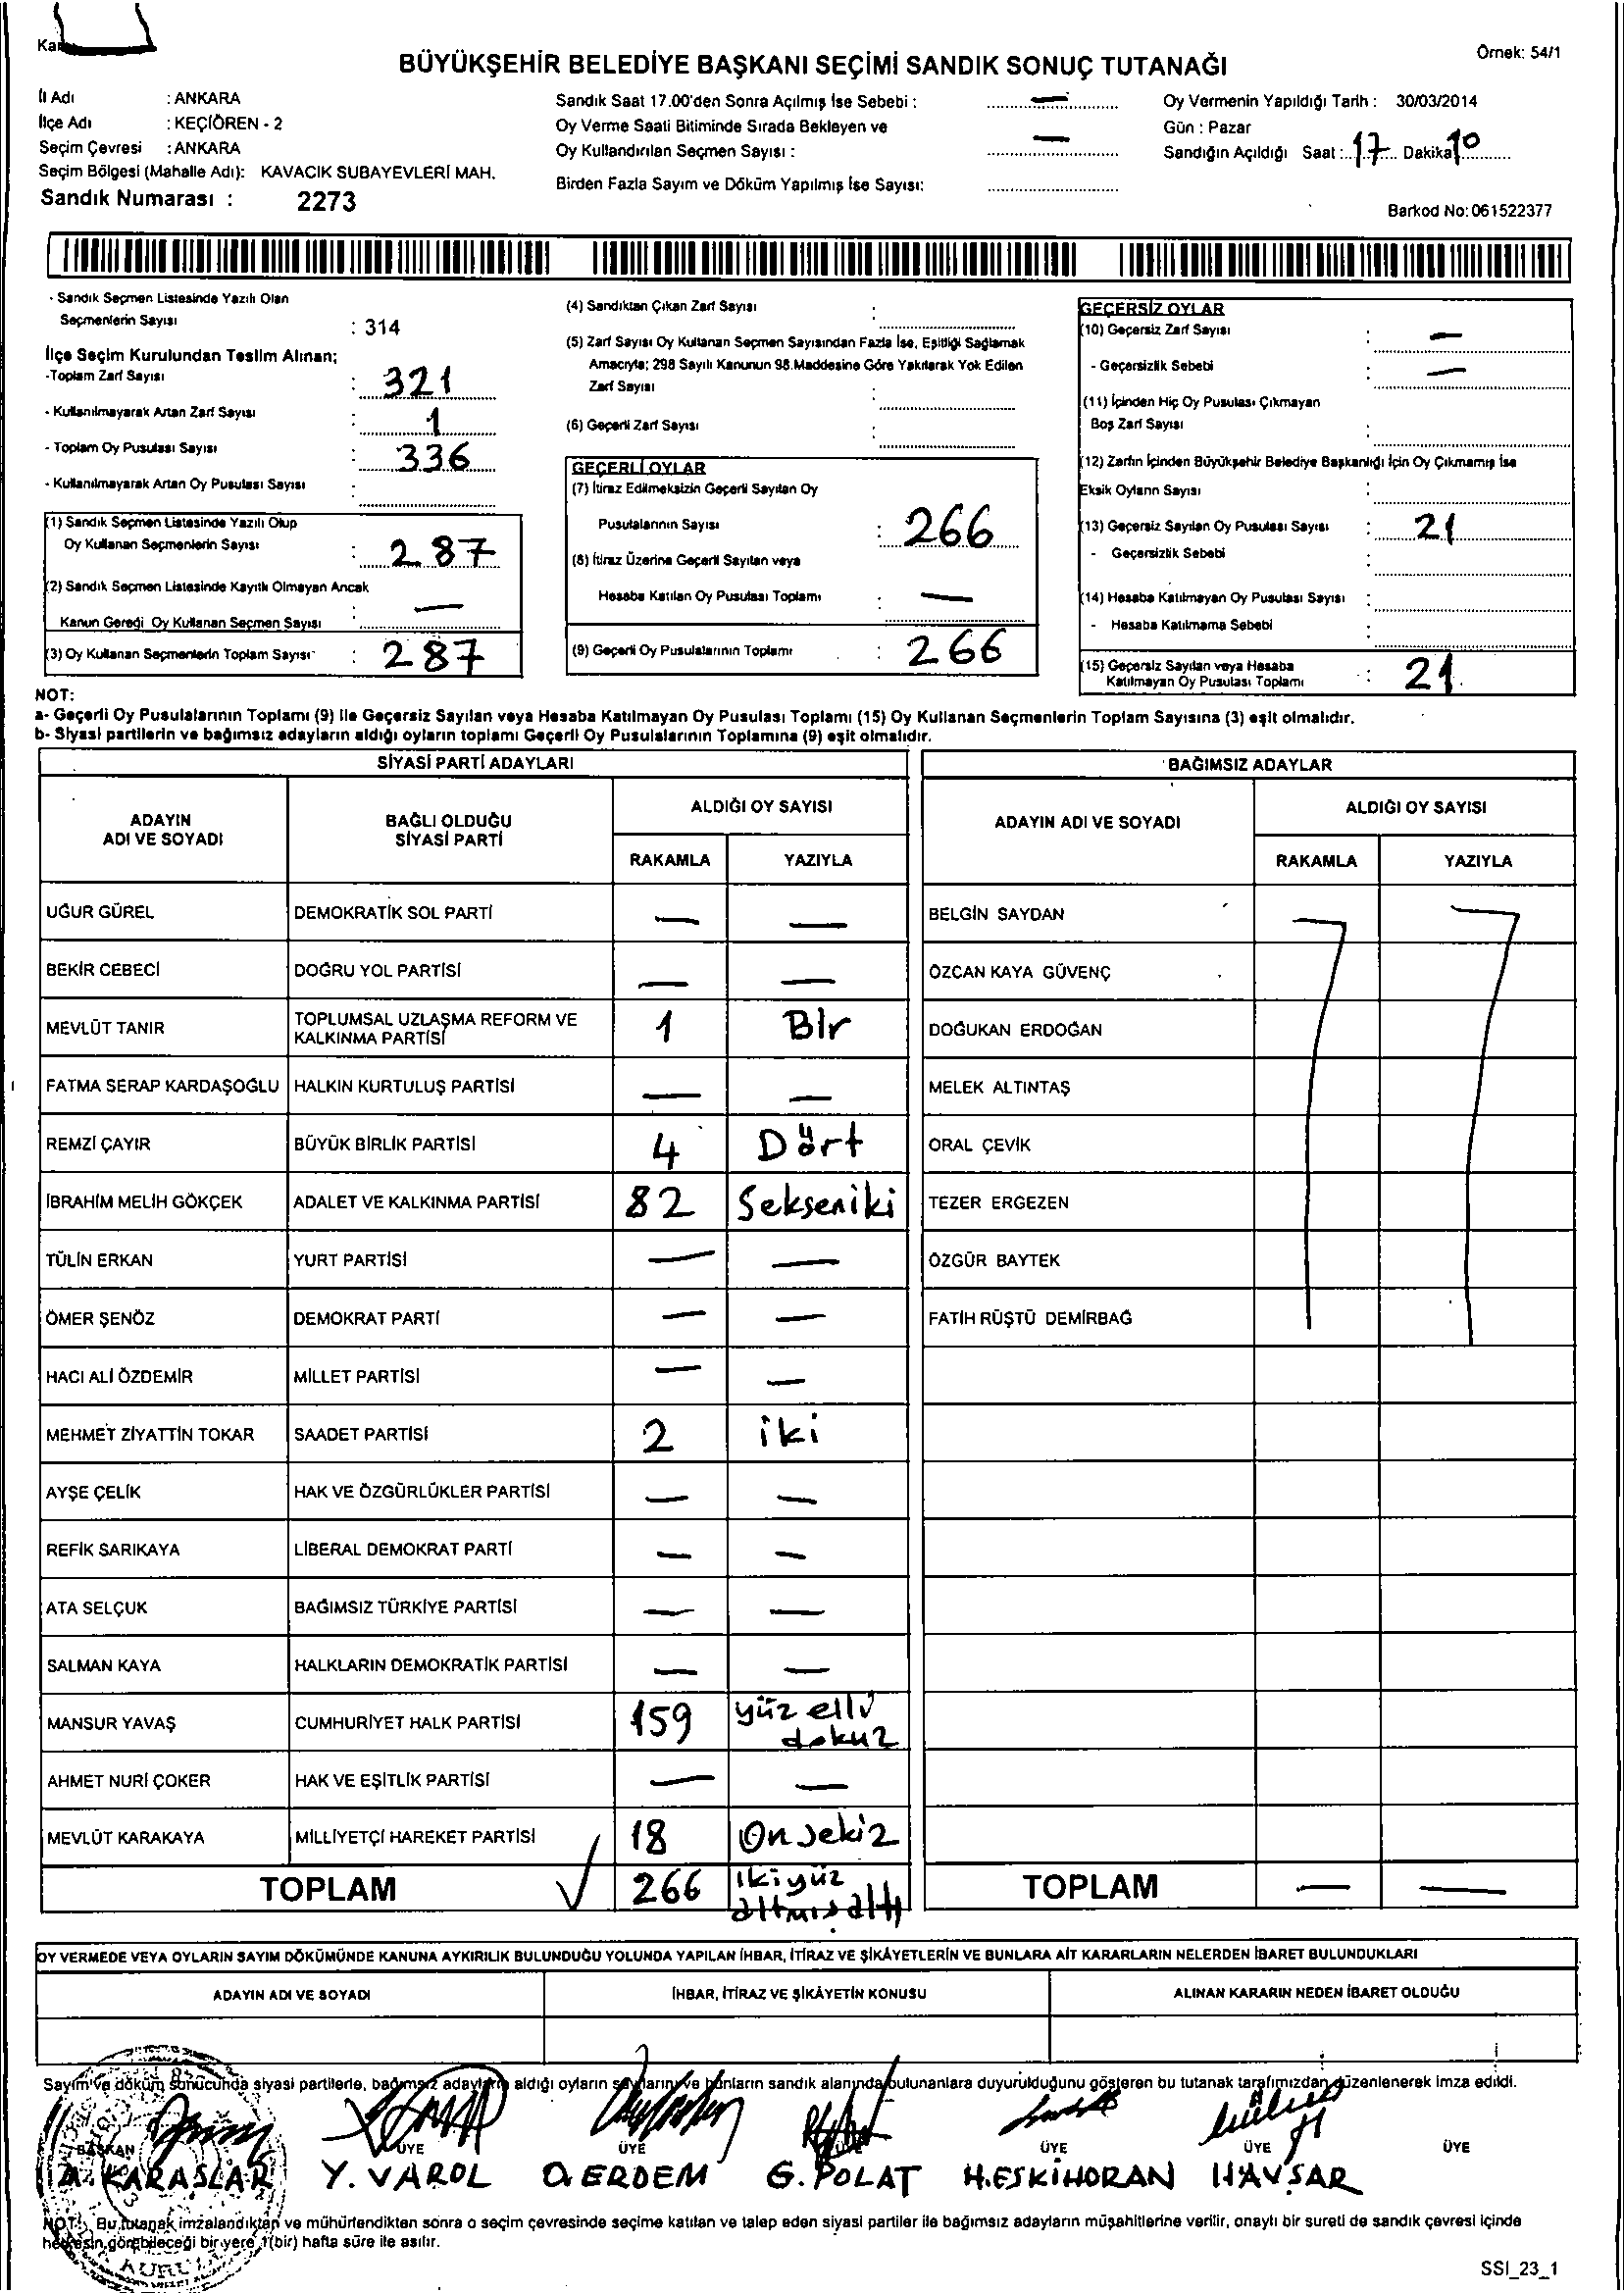 BÜYÜKŞEHİR BELEDİYE BAŞKANI SEÇİMİ SANDIK SONUÇ TUTANAĞI
Örnek: 54/1
İl Adı : ANKARA
İlçe Adı : KEÇİÖREN - 2
Seçim Çevresi : ANKARA
Seçim Bölgesi (Mahalle Adı): KAVACIK SUBAYEVLERİ MAH.
Sandık Numarası : 2273
Sandık Saat 17.00'den Sonra Açılmış İse Sebebi : —
Oy Verme Saati Bitiminde Sırada Bekleyen ve
Oy Kullandırılan Seçmen Sayısı : —
Birden Fazla Sayım ve Döküm Yapılmış İse Sayısı:
Oy Vermenin Yapıldığı Tarih : 30/03/2014
Gün : Pazar
Sandığın Açıldığı Saat : 17 Dakika 10
Barkod No: 061522377
- Sandık Seçmen Listesinde Yazılı Olan
Seçmenlerin Sayısı : 314
İlçe Seçim Kurulundan Teslim Alınan;
-Toplam Zarf Sayısı : 321
- Kullanılmayarak Artan Zarf Sayısı : 1
- Toplam Oy Pusulası Sayısı : 336
- Kullanılmayarak Artan Oy Pusulası Sayısı :
(1) Sandık Seçmen Listesinde Yazılı Olup
Oy Kullanan Seçmenlerin Sayısı : 287
(2) Sandık Seçmen Listesinde Kayıtlı Olmayan Ancak
Kanun Gereği Oy Kullanan Seçmen Sayısı : —
(3) Oy Kullanan Seçmenlerin Toplam Sayısı : 287
(4) Sandıktan Çıkan Zarf Sayısı :
(5) Zarf Sayısı Oy Kullanan Seçmen Sayısından Fazla İse, Eşitliği Sağlamak
Amacıyla; 298 Sayılı Kanunun 98.Maddesine Göre Yakılarak Yok Edilen
Zarf Sayısı :
(6) Geçerli Zarf Sayısı :
GEÇERLİ OYLAR
(7) İtiraz Edilmeksizin Geçerli Sayılan Oy
Pusulalarının Sayısı : 266
(8) İtiraz Üzerine Geçerli Sayılan veya
Hesaba Katılan Oy Pusulası Toplamı : —
(9) Geçerli Oy Pusulalarının Toplamı : 266
GEÇERSİZ OYLAR
(10) Geçersiz Zarf Sayısı : —
- Geçersizlik Sebebi : —
(11) İçinden Hiç Oy Pusulası Çıkmayan
Boş Zarf Sayısı :
(12) Zarfın İçinden Büyükşehir Belediye Başkanlığı İçin Oy Çıkmamış İse
Eksik Oyların Sayısı :
(13) Geçersiz Sayılan Oy Pusulası Sayısı : 21
- Geçersizlik Sebebi :
(14) Hesaba Katılmayan Oy Pusulası Sayısı :
- Hesaba Katılmama Sebebi :
(15) Geçersiz Sayılan veya Hesaba
Katılmayan Oy Pusulası Toplamı : 21
NOT:
a- Geçerli Oy Pusulalarının Toplamı (9) ile Geçersiz Sayılan veya Hesaba Katılmayan Oy Pusulası Toplamı (15) Oy Kullanan Seçmenlerin Toplam Sayısına (3) eşit olmalıdır.
b- Siyasi partilerin ve bağımsız adayların aldığı oyların toplamı Geçerli Oy Pusulalarının Toplamına (9) eşit olmalıdır.
SİYASİ PARTİ ADAYLARI
ADAYIN ADI VE SOYADI
BAĞLI OLDUĞU SİYASİ PARTİ
ALDIĞI OY SAYISI
RAKAMLA YAZIYLA
UĞUR GÜREL DEMOKRATİK SOL PARTİ — —
BEKİR CEBECİ DOĞRU YOL PARTİSİ — —
MEVLÜT TANIR TOPLUMSAL UZLAŞMA REFORM VE KALKINMA PARTİSİ 1 Bir
FATMA SERAP KARDAŞOĞLU HALKIN KURTULUŞ PARTİSİ — —
REMZİ ÇAYIR BÜYÜK BİRLİK PARTİSİ 4 Dört
İBRAHİM MELİH GÖKÇEK ADALET VE KALKINMA PARTİSİ 82 Sekseniki
TÜLİN ERKAN YURT PARTİSİ — —
ÖMER ŞENÖZ DEMOKRAT PARTİ — —
HACI ALİ ÖZDEMİR MİLLET PARTİSİ — —
MEHMET ZİYATTİN TOKAR SAADET PARTİSİ 2 iki
AYŞE ÇELİK HAK VE ÖZGÜRLÜKLER PARTİSİ — —
REFİK SARIKAYA LİBERAL DEMOKRAT PARTİ — —
ATA SELÇUK BAĞIMSIZ TÜRKİYE PARTİSİ — —
SALMAN KAYA HALKLARIN DEMOKRATİK PARTİSİ — —
MANSUR YAVAŞ CUMHURİYET HALK PARTİSİ 159 yüz elli dokuz
AHMET NURİ ÇOKER HAK VE EŞİTLİK PARTİSİ — —
MEVLÜT KARAKAYA MİLLİYETÇİ HAREKET PARTİSİ 18 Onsekiz
TOPLAM 266 ikiyüz altmış altı
BAĞIMSIZ ADAYLAR
ADAYIN ADI VE SOYADI
ALDIĞI OY SAYISI
RAKAMLA YAZIYLA
BELGİN SAYDAN
ÖZCAN KAYA GÜVENÇ
DOĞUKAN ERDOĞAN
MELEK ALTINTAŞ
ORAL ÇEVİK
TEZER ERGEZEN
ÖZGÜR BAYTEK
FATİH RÜŞTÜ DEMİRBAĞ
TOPLAM — —
OY VERMEDE VEYA OYLARIN SAYIM DÖKÜMÜNDE KANUNA AYKIRILIK BULUNDUĞU YOLUNDA YAPILAN İHBAR, İTİRAZ VE ŞİKÂYETLERİN VE BUNLARA AİT KARARLARIN NELERDEN İBARET BULUNDUKLARI
ADAYIN ADI VE SOYADI
İHBAR, İTİRAZ VE ŞİKÂYETİN KONUSU
ALINAN KARARIN NEDEN İBARET OLDUĞU
Sayım ve döküm sonucunda siyasi partilerle, bağımsız adayların aldığı oyların sayılarını ve bunların sandık alanında bulunanlara duyurulduğunu gösteren bu tutanak tarafımızdan düzenlenerek imza edildi.
BAŞKAN ÜYE ÜYE ÜYE ÜYE ÜYE ÜYE
A. KARASLAR Y. VAROL O. ERDEM G. POLAT H.ESKİHORAN H.AVŞAR
NOT: Bu tutanak imzalandıktan ve mühürlendikten sonra o seçim çevresinde seçime katılan ve talep eden siyasi partiler ile bağımsız adayların müşahitlerine verilir, onaylı bir sureti de sandık çevresi içinde
herkesin görebileceği bir yere 1(bir) hafta süre ile asılır.
SSI_23_1